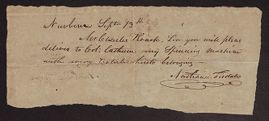 Newbern Sept 13th
Mr Charles Roach. Sir you will please
deliver to Col. Cathcart my Spinning machine
with every Article thereto belonging
Nathan Tisdale